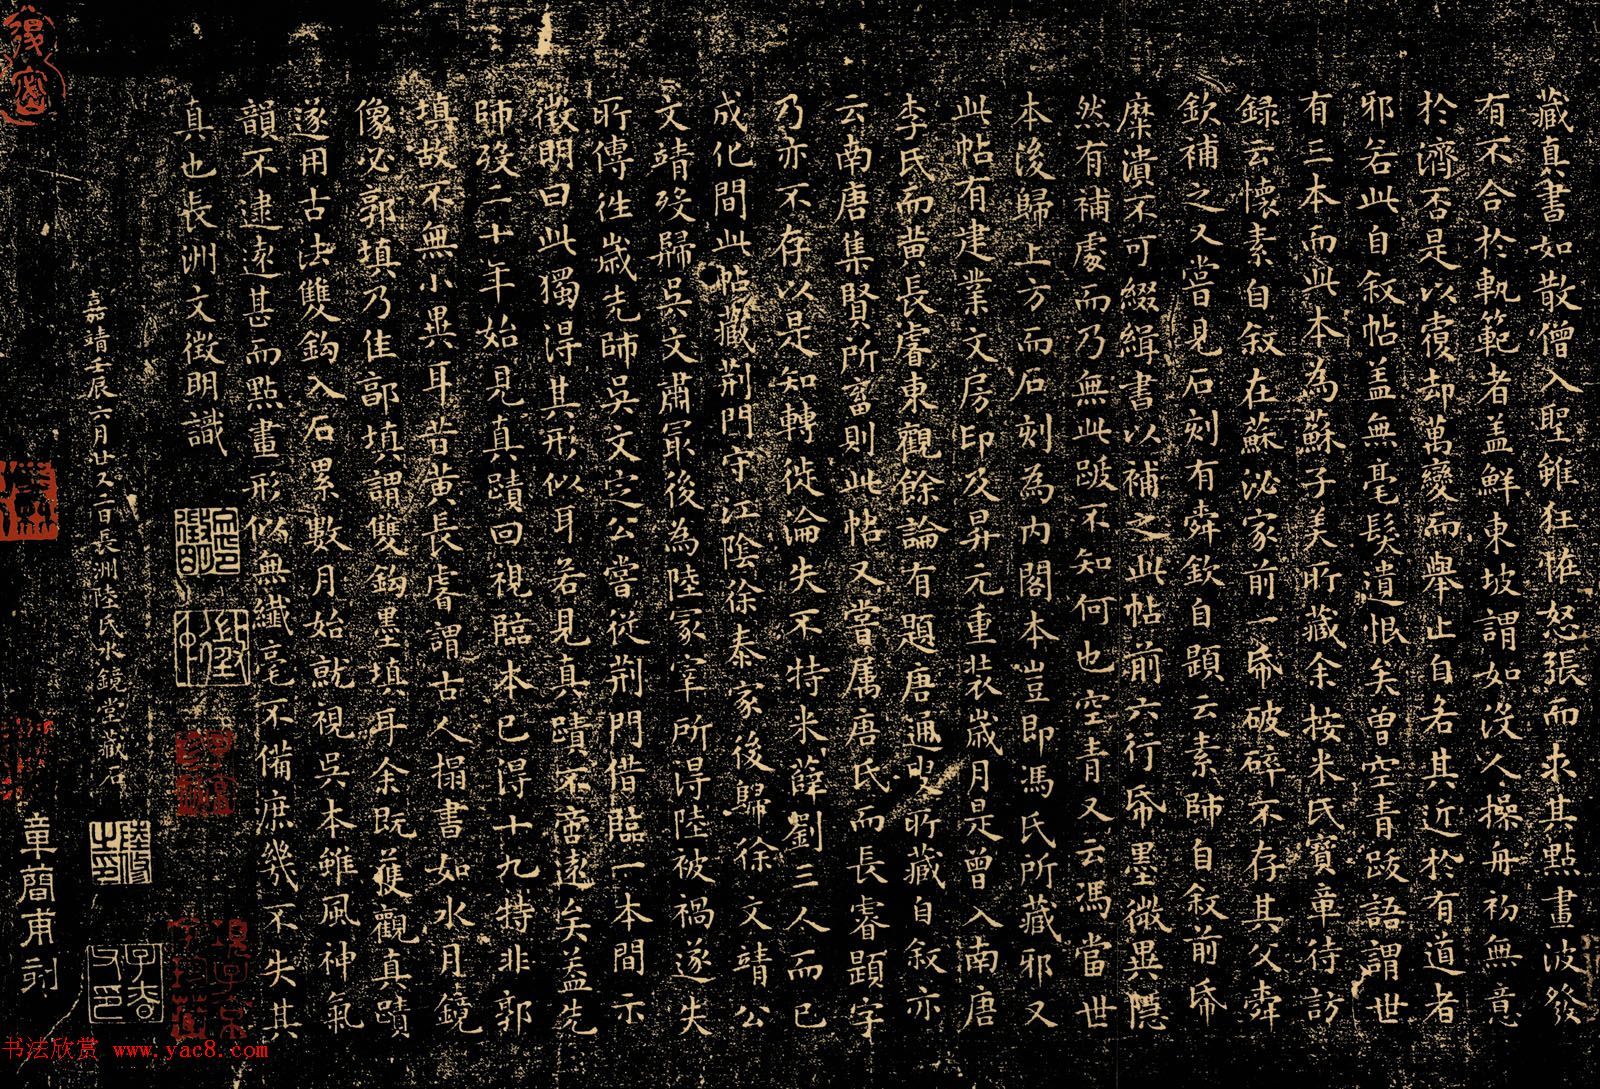 藏真書如散僧入聖雖狂恠怒張而求其點畫波發
有不合於軌範者蓋鮮東坡謂如沒人操舟初無意
於濟否是以覆却萬變而舉止自若其近於有道者
邪若此自敘帖蓋無毫髮遺恨矣曾空青跋語謂世
有三本而此本為蘇子美所藏余按米氏寶章待訪
録云懷素自叙在蘇泌家前一帋破碎不存其父舜
欽補之又嘗見石刻有舜欽自題云素師自叙前帋
糜潰不可綴緝書以補之此帖前六行帋墨微異隱
然有補處而乃無此跋不知何也空青又云馮當世
本後歸上方而石刻為內閣本豈即馮氏所藏邪又
此帖有建業文房印及昇元重裝歲月是曾入南唐
李氏而黃長睿東觀餘論有題唐通叟所藏自敘亦
云南唐集賢所畜則此帖又嘗属唐氏而長睿題字
乃亦不存以是知轉徙淪失不特米薛劉三人而已
成化間此帖藏荊門守江陰徐泰家後歸徐文靖公
文靖歿歸吳文肅冣後為陸冢宰所得陸被禍遂失
所傳徃歲先師吳文定公嘗從荊門借臨一本間示
徵明曰此獨得其形似耳若見真蹟不啻遠矣蓋先
師歿二十年始見真蹟回視臨本已得十九特非郭
填故不無小異耳昔黃長睿謂古人搨書如水月鏡
像必郭填乃佳郭填謂雙鈎墨填耳余既獲觀真蹟
遂用古法雙鈎入石累數月始就視吳本雖風神氣
韻不逮遠甚而點畫形似無纖毫不備庶幾不失其
真也長洲文徵明識
嘉靖壬辰六月廿又二日長洲陸氏水鏡堂藏石
章簡甫刻
书法欣赏 www.yac8.com